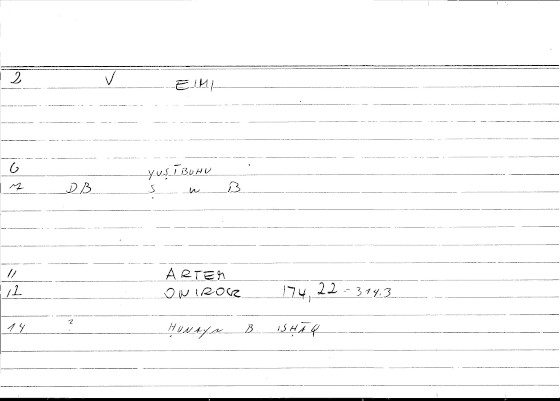 2 V EIMI
6 YUṢĪBUHU
7 DB Ṣ W B
11 ARTEM
12 ONIROCR 174,22 = 314.3
14 2 ḤUNAYN B ISḤĀQ